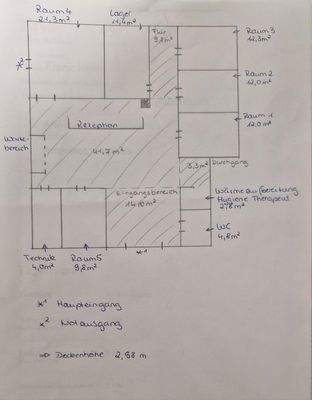 Raum 4
21,3 m²
Lager
11,4 m²
Flur
9,2 m²
Raum 3
12,3 m²
Raum 2
12,0 m²
Raum 1
12,0 m²
*2
Rezeption
Warte-
bereich
41,7 m²
3,3 m²
Durchgang
Eingangsbereich
14,10 m²
Wärmeaufbereitung
Hygiene Therapeut
2,8 m²
WC
4,8 m²
*1
Technik
4,0 m²
Raum 5
9,8 m²
*1 Haupteingang
*2 Notausgang
⇒ Deckenhöhe 2,88 m